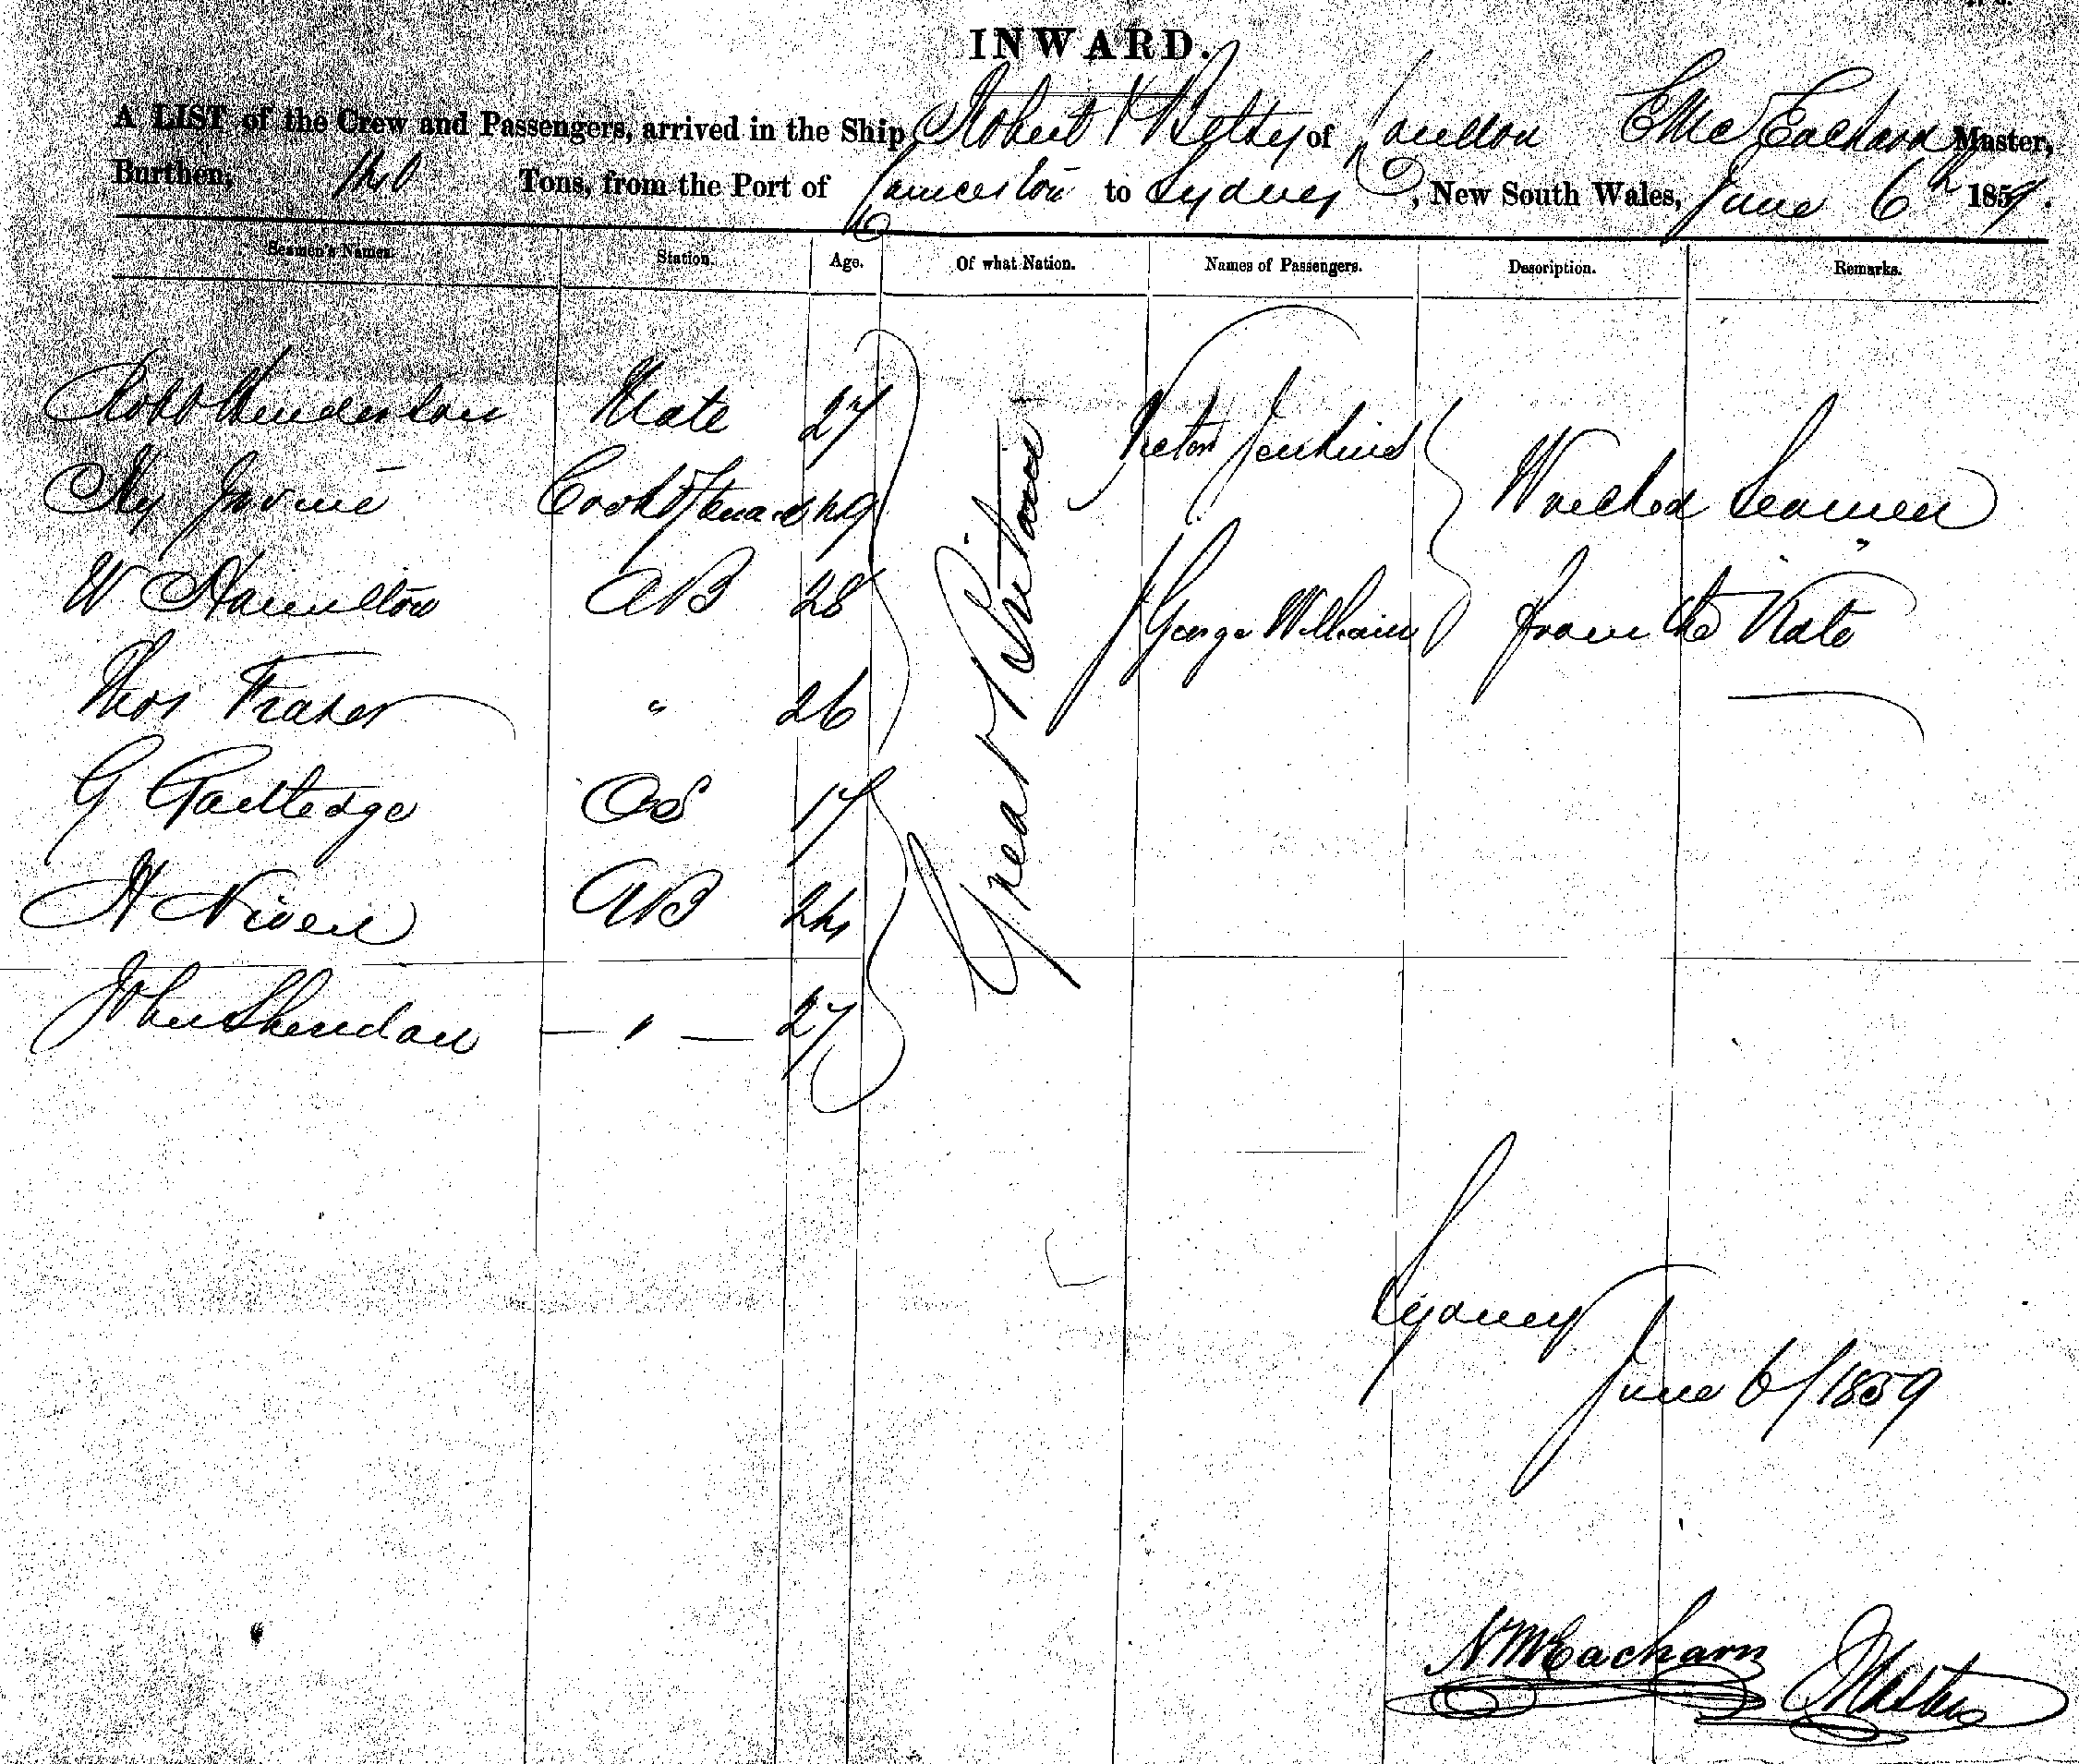 INWARD.
A LIST of the Crew and Passengers, arrived in the Ship Robert & Betsy of London McEacharn Master,
Burthen, Tons, from the Port of Launceston to Sydney, New South Wales, June 6th 1859.
Seamen's Names. Station. Age. Of what Nation. Names of Passengers. Description. Remarks.
Robt Henderson Mate 27 Great Britain
Hy Irvine Cook & Steward 49 Jenkins Wrecked Seamen
W Hamilton AB 28 George William from the Kate
Thos Fraser " 26
G 17
H Niven AB 24
John Sheridan — " — 27
Sydney
June 6/1859
N McEacharn Master